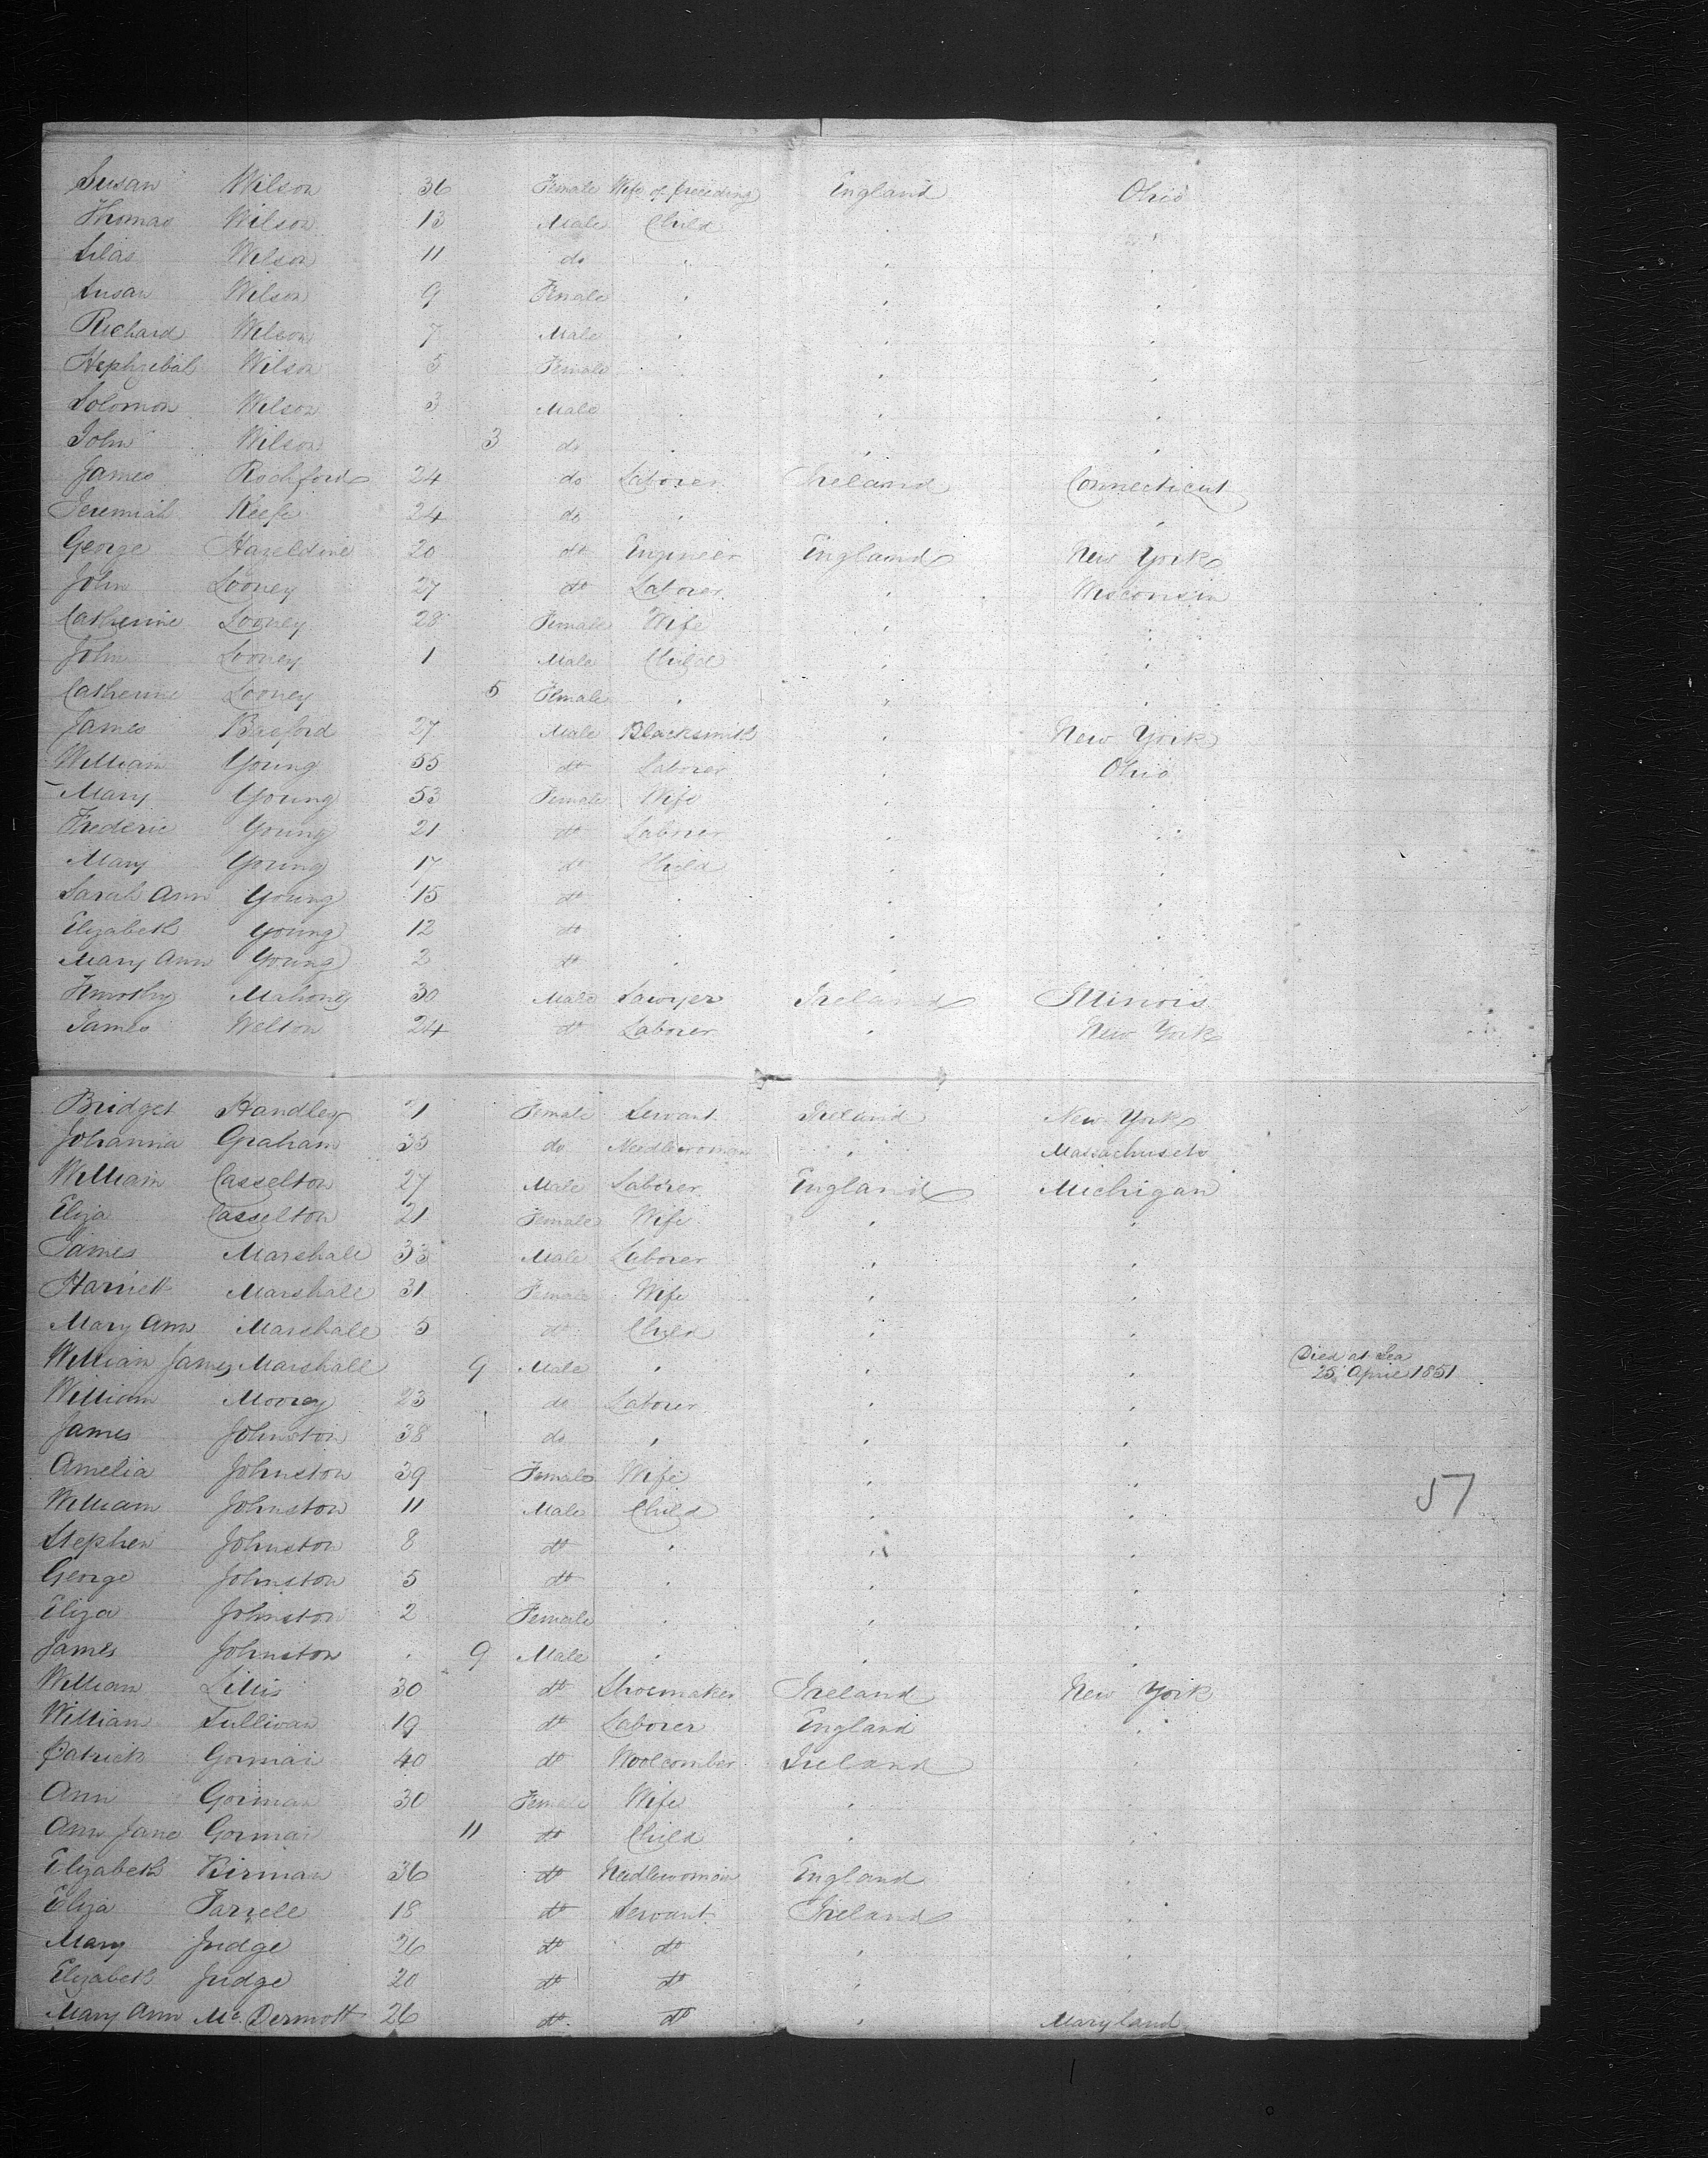 Susan Wilson 36 Female Wife of preceding England Ohio
Thomas Wilson 13 Male Child " "
Silas Wilson 11 do " " "
Susan Wilson 9 Female " " "
Richard Wilson 7 Male " " "
Hephzibah Wilson 5 Female " " "
Solomon Wilson 3 Male " " "
John Wilson 3 do " " "
James Rochford 24 do Laborer Ireland Connecticut
Jeremiah Keefe 24 do " " "
George Hazeldine 20 do Engineer England New York
John Looney 27 do Laborer " Wisconsin
Catherine Looney 28 Female Wife " "
John Looney 1 Male Child " "
Catherine Looney 5 Female " " "
James Basford 27 Male Blacksmith " New York
William Young 55 do Laborer " Ohio
Mary Young 53 Female Wife " "
Frederic Young 21 do Laborer " "
Mary Young 17 do Child " "
Sarah Ann Young 15 do " " "
Elizabeth Young 12 do " " "
Mary Ann Young 2 do " " "
Timothy Mahony 30 Male Sawyer Ireland Illinois
James Welton 24 do Laborer " New York
Bridget Handley 21 Female Servant Ireland New York
Johanna Graham 35 do Needlewoman " Massachusets
William Casselton 27 Male Laborer England Michigan
Eliza Casselton 21 Female Wife " "
James Marshall 33 Male Laborer " "
Harriett Marshall 31 Female Wife " "
Mary Ann Marshall 5 do Child " "
William James Marshall 9 Male " " " Died at Sea 25 April 1851
William Moorey 23 do Laborer " "
James Johnston 38 do " " "
Amelia Johnston 39 Female Wife " "
William Johnston 11 Male Child " " 57
Stephen Johnston 8 do " " "
George Johnston 5 do " " "
Eliza Johnston 2 Female " " "
James Johnston 9 Male " " "
William Lillis 30 do Shoemaker Ireland New York
William Sullivan 19 do Laborer England "
Patrick Gorman 40 do Woolcomber Ireland "
Ann Gorman 30 Female Wife " "
Ann Jane Gorman 11 do Child " "
Elizabeth Kirman 36 do Needlewoman England "
Eliza Farrell 18 do Servant Ireland "
Mary Judge 26 do do " "
Elizabeth Judge 20 do do " "
Mary Ann Mc.Dermott 26 do do " Maryland